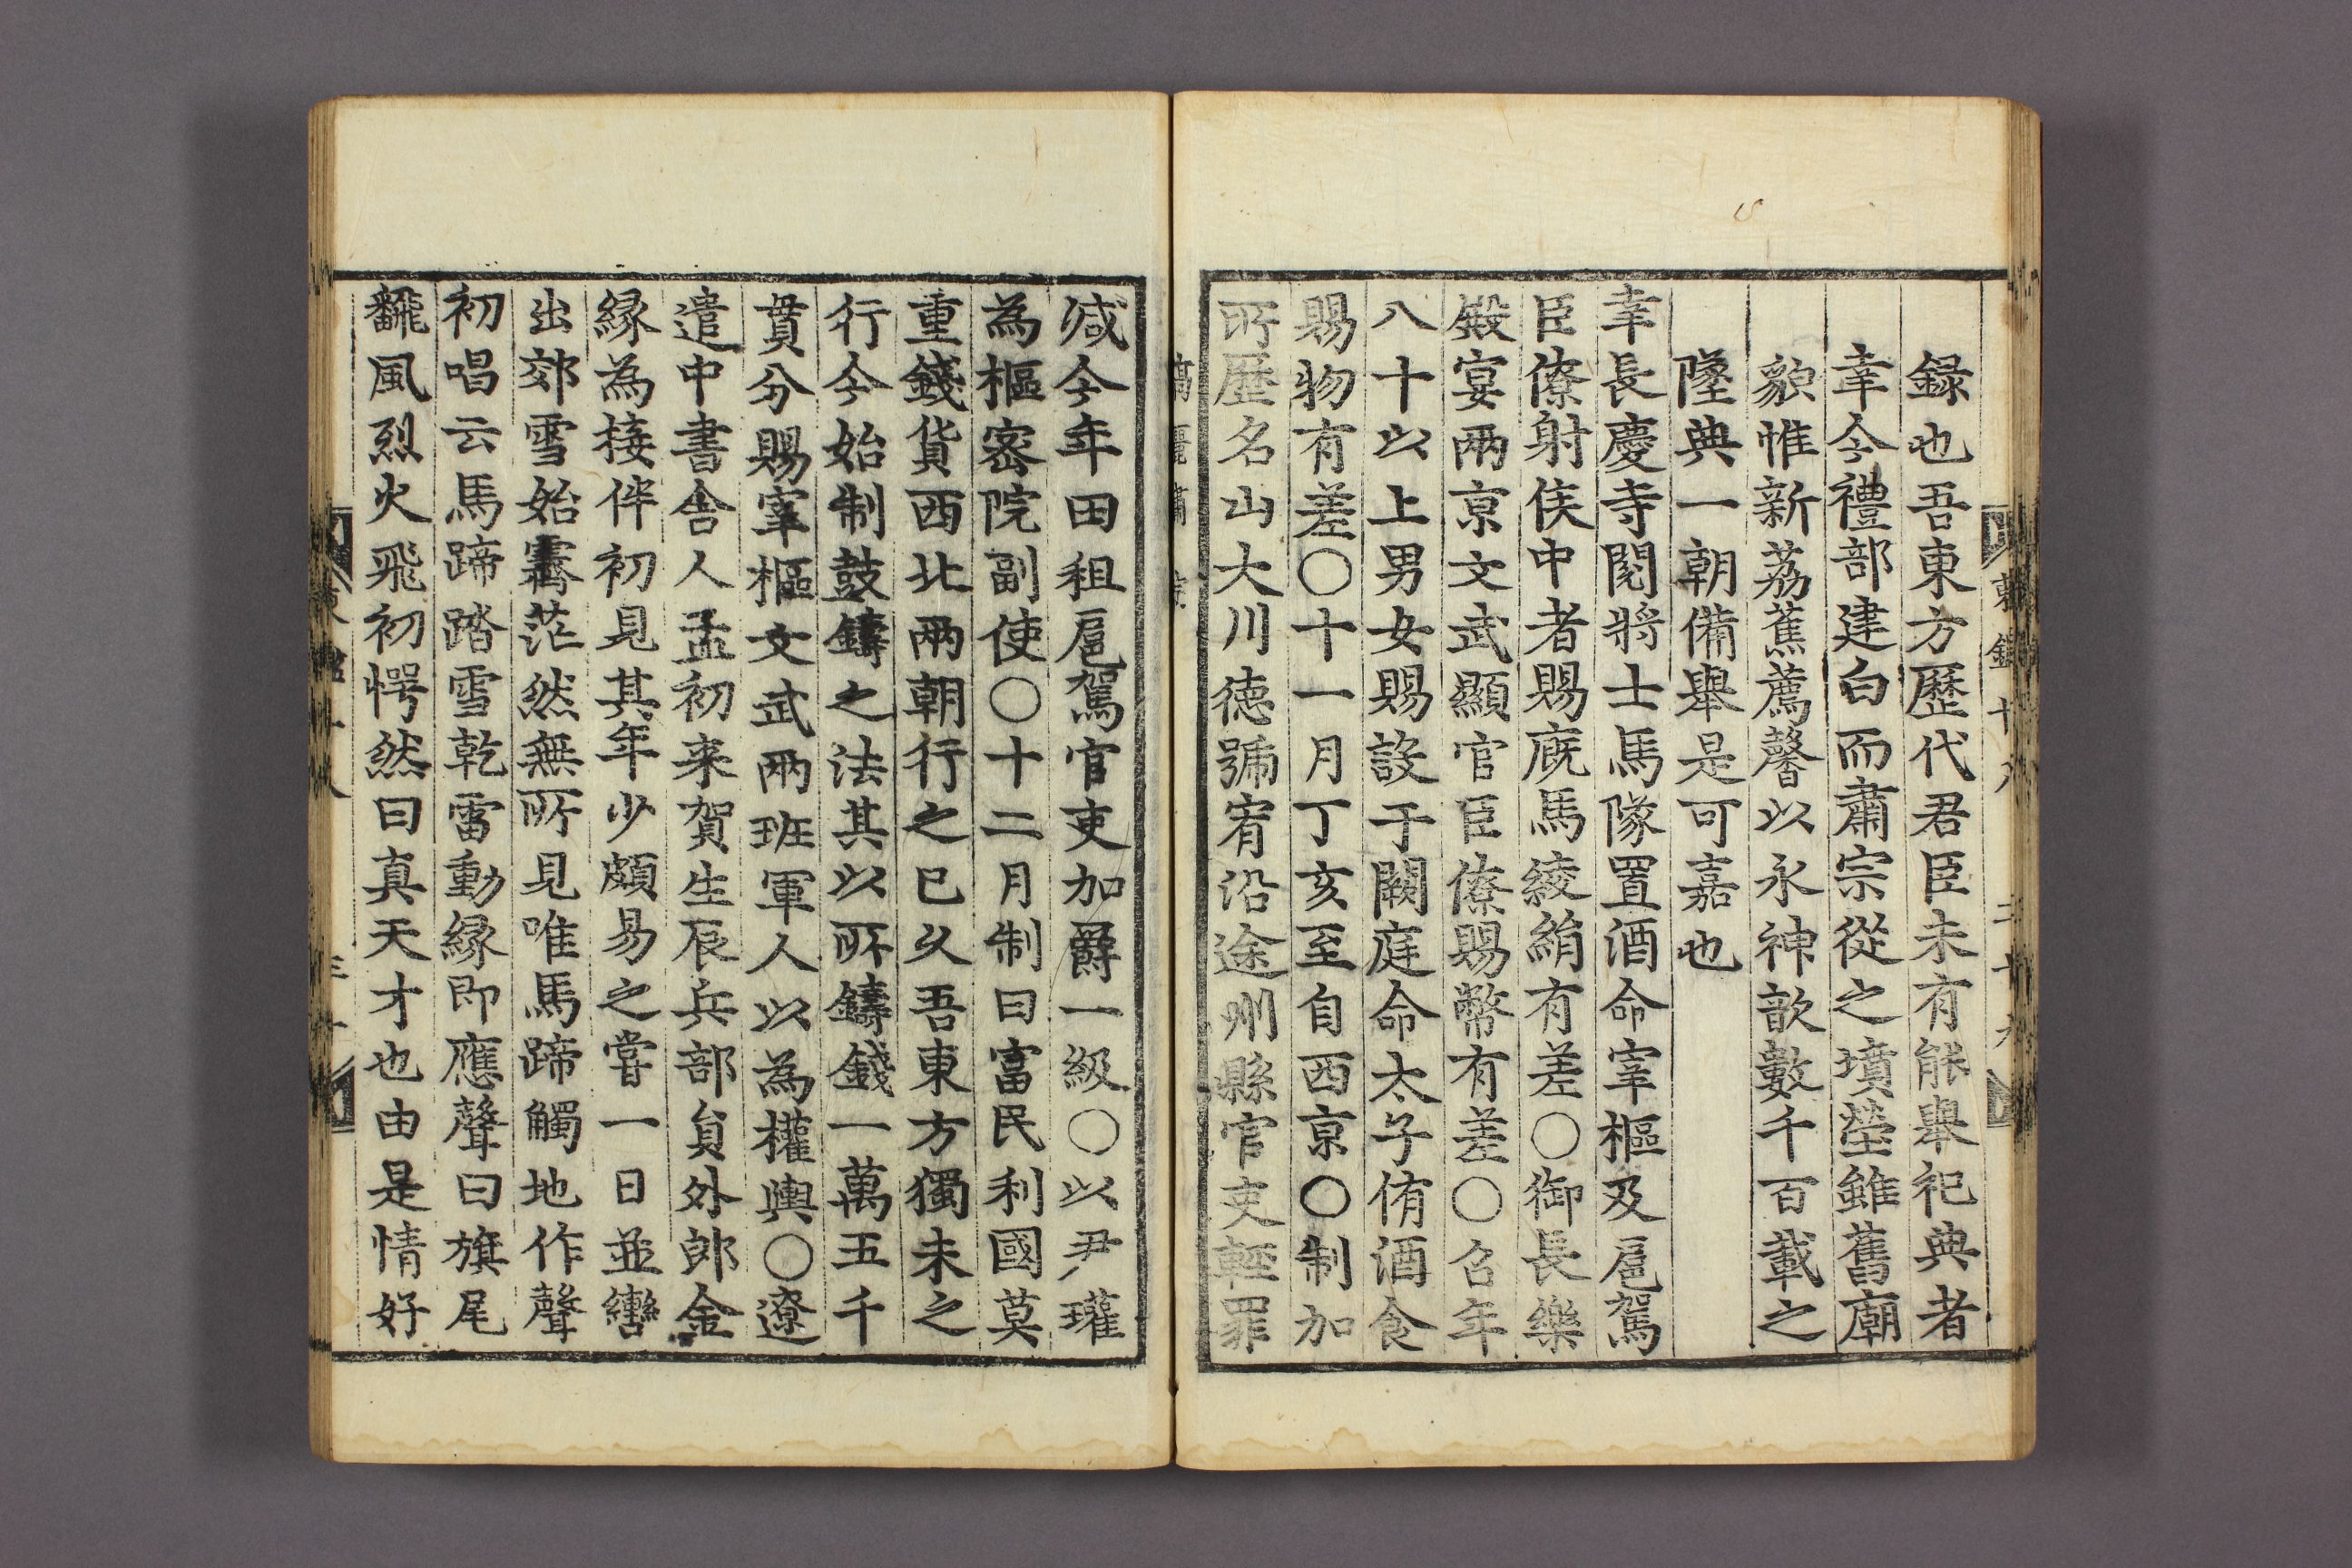 録也吾東方歷代君臣未有能舉祀典者
幸今禮部建白而肅宗從之墳塋雖舊廟
貌惟新荔蕉薦馨以永神歆數千百載之
隆典一朝備舉是可嘉也
幸長慶寺閱將士馬隊置酒命宰樞及扈駕
臣僚射侯中者賜廐馬綾絹有差○御長樂
殿宴兩京文武顯官臣僚賜幣有差○召年
八十以上男女賜設于闕庭命太子侑酒食
賜物有差○十一月丁亥至自西京○制加
所歷名山大川德號宥沿途州縣官吏輕罪
減今年田租扈駕官吏加爵一級○以尹瓘
為樞密院副使○十二月制曰富民利國莫
重錢貨西北兩朝行之已久吾東方獨未之
行今始制鼓鑄之法其以所鑄錢一萬五千
貫分賜宰樞文武兩班軍人以為權輿○遼
遣中書舍人孟初来賀生辰兵部貟外郎金
緣為接伴初見其年少頗易之嘗一日並轡
出郊雪始霽茫然無所見唯馬蹄觸地作聲
初唱云馬蹄踏雪乾雷動緣即應聲曰旗尾
翻風烈火飛初愕然曰真天才也由是情好